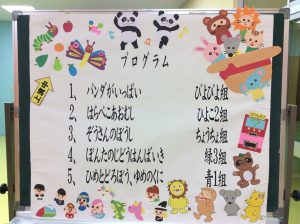 プログラム
1、パンダがいっぱい ぴよぴよ組
2、はらぺこあおむし ひよこ2組
3、ぞうさんのぼうし ちょうちょ組
4、ぽんたのじどうはんばいき 緑3組
5、ひめとどろぼう、ゆめのくに 青1組